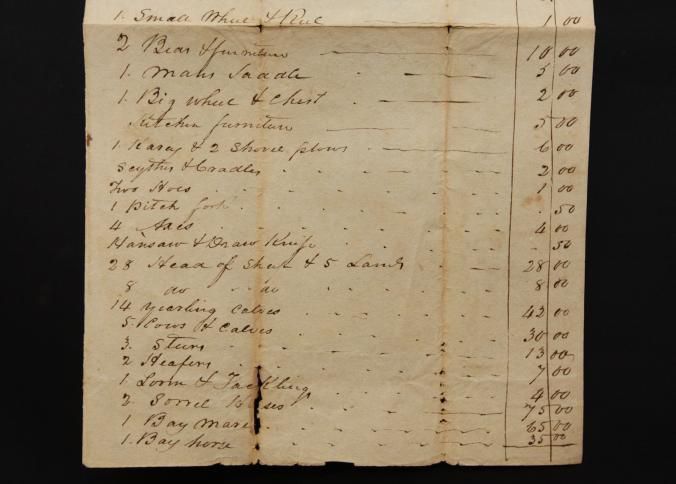 1. Small Wheel & Reel 1 00
2 Beds & furniture 10 00
1. Mans Saddle 5 00
1. Big wheel & Chest 2 00
Kitchen furniture 5 00
1 Karey & 2 Shovel plows 6 00
Scythes & Cradles 2 00
Two Hoes 1 00
1 Pitch fork 50
4 Axes 4 00
Hansaw & Draw Knife 50
28 Head of Sheep & 5 Lambs 28 00
8 do do 8 00
14 yearling calves 42 00
5. Cows & Calves 30 00
3. Steers 13 00
2 Heafers 7 00
1. Loom & Tackling 4 00
2. Sorrel 75 00
1 Bay mare 65 00
1. Bay horse 35 00